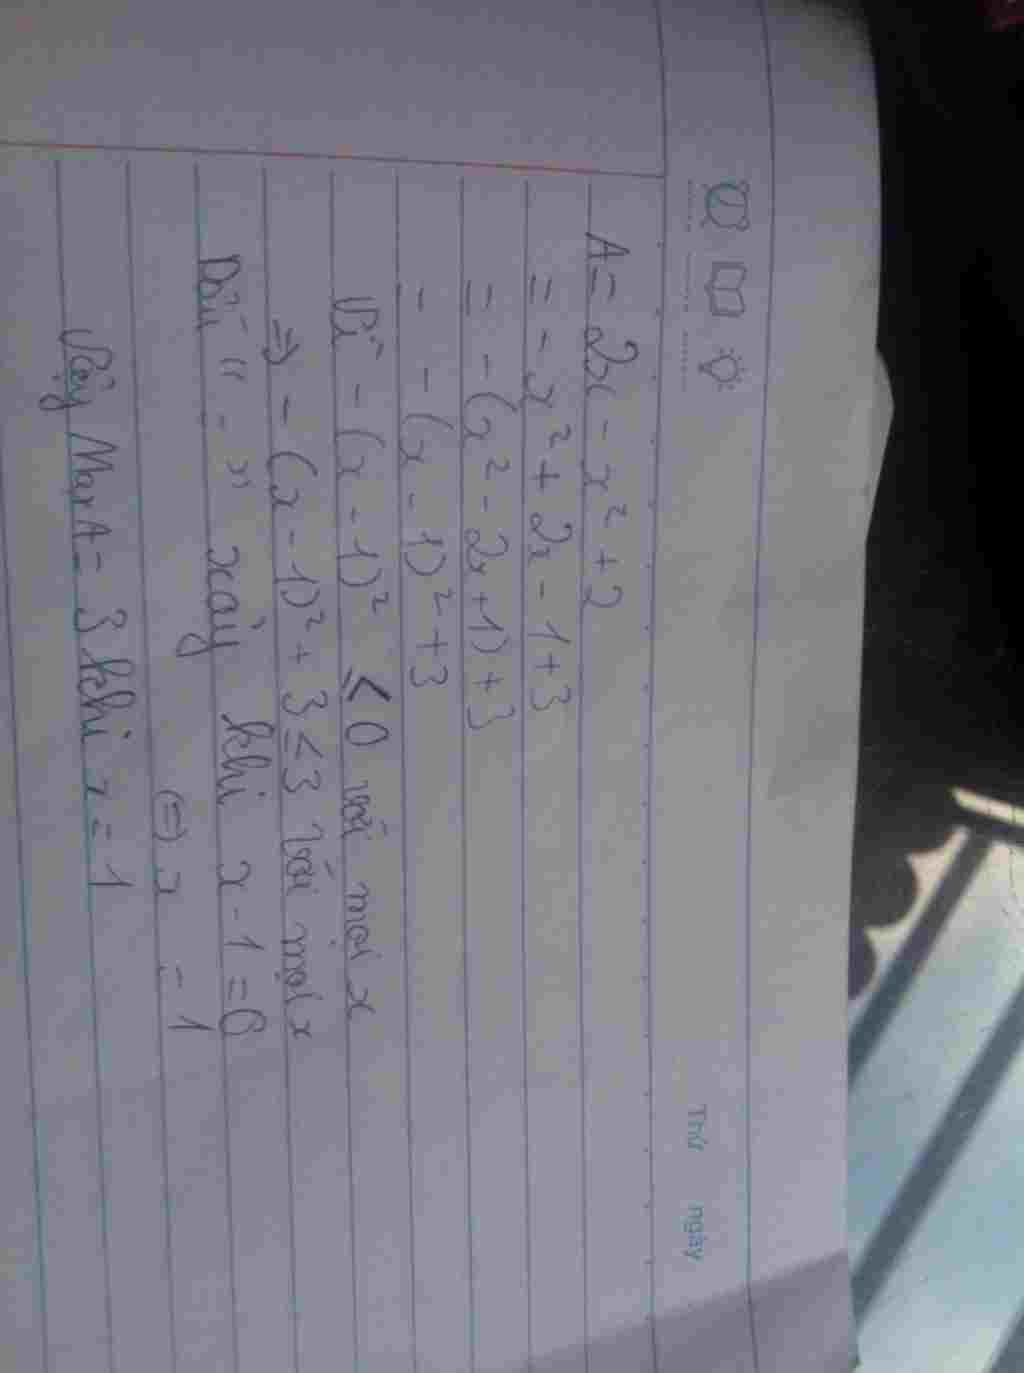 Thứ ngày
A = 2x - x² + 2
= - x² + 2x - 1 + 3
= - (x² - 2x + 1) + 3
= - (x - 1)² + 3
Vì - (x - 1)² ≤ 0 với mọi x
⇒ - (x - 1)² + 3 ≤ 3 với mọi x
Dấu " = " xảy khi x - 1 = 0
⇔ x = 1
Vậy Max A = 3 khi x = 1